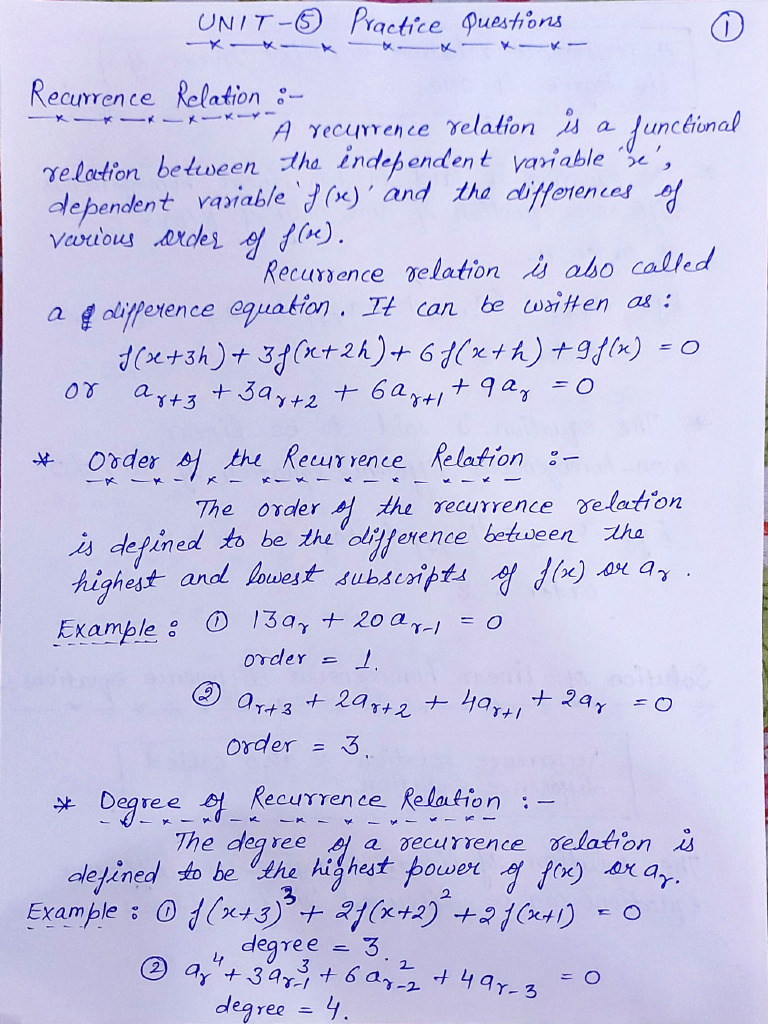 UNIT-⑤ Practice Questions
①
Recurrence Relation :-
A recurrence relation is a functional
relation between the independent variable 'x',
dependent variable 'f(x)' and the differences of
various order of f(x).
Recurrence relation is also called
a difference equation. It can be written as :
f(x+3h) + 3f(x+2h) + 6f(x+h) + 9f(x) = 0
or a_{r+3} + 3a_{r+2} + 6a_{r+1} + 9a_r = 0
* Order of the Recurrence Relation :-
The order of the recurrence relation
is defined to be the difference between the
highest and lowest subscripts of f(x) or a_r.
Example : ① 13a_r + 20a_{r-1} = 0
order = 1.
② a_{r+3} + 2a_{r+2} + 4a_{r+1} + 2a_r = 0
order = 3.
* Degree of Recurrence Relation :-
The degree of a recurrence relation is
defined to be the highest power of f(x) or a_r.
Example : ① f(x+3)^3 + 2f(x+2)^2 + 2f(x+1) = 0
degree = 3.
② a_r^4 + 3a_{r-1}^3 + 6a_{r-2}^2 + 4a_{r-3} = 0
degree = 4.